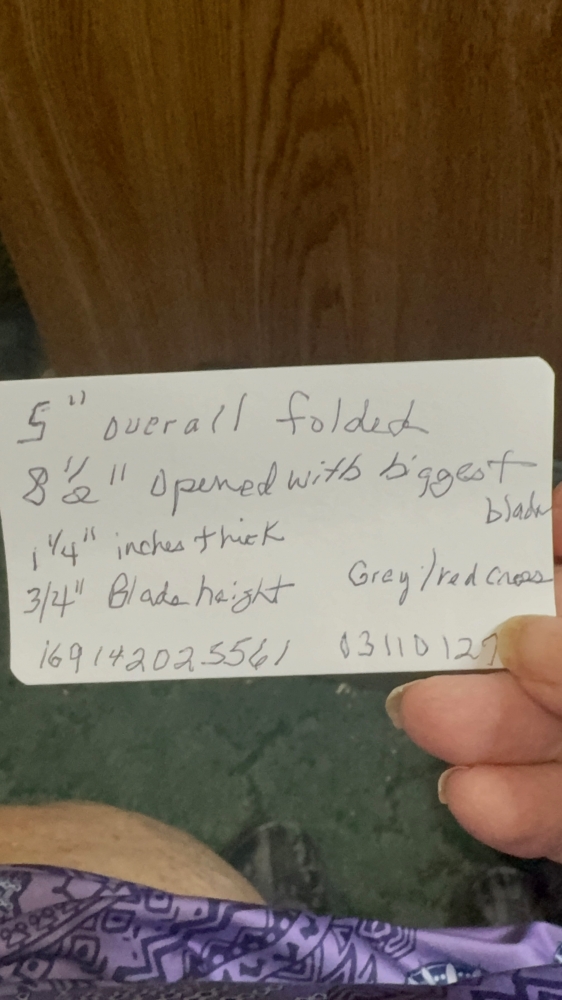 5" overall folded
8 1/2" opened with biggest
blade
1 1/4" inches thick
3/4" Blade height Grey/red cross
169142025561 0311012